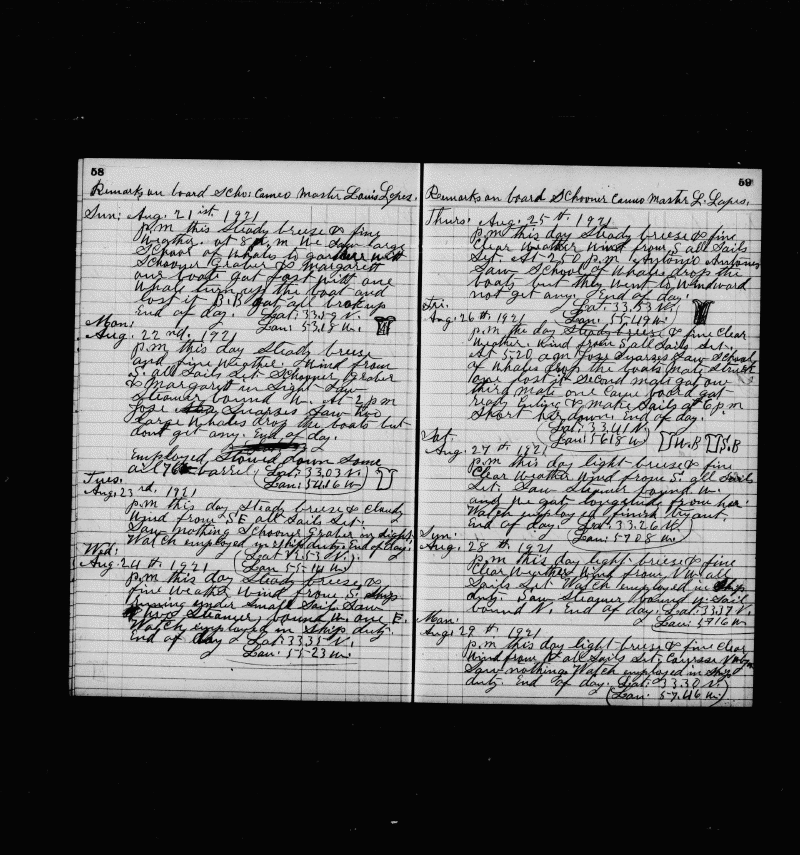 58
Remarks on board Scho: Cameo Master Louis Lopes.
Sun: Aug. 21 ist. 1921
p.m this day Steady breese & fine
Weather. at 8 p.m We Saw large
School of Whales to
Schooner Graber & Margarett
our boats got fast with one
Whale turn up the boat and
lost it B.B got all
End of day. Lat: N.
Lon: 53.18 W.
Mon:
Aug. 22 nd. 1921
p.m this day Steady breese
and fine Weather. Wind from
S. all Sails Set. Schooner Graber
& Margarett in Sight Saw
Steamer bound W. At 2 p.m
Jose Saw two
large Whales drop the boats but
dont get any. End of day.
Employed Stowed down Some
oil 76 barrel, Lat: 33.03 N.
Lon: 54.16 W.
Tues:
Aug. 23 rd. 1921
p.m this day Steady breese & cloudy
Wind from SE all Sails Set.
Saw nothing Schooner Graber in Sight,
Watch employed in Ship duty. End of day.
Wed: Lat: N.
Aug. 24 th. 1921 Lon: 55-14 W.
p.m this day Steady breese &
fine Weather Wind from S. Ship
under Small Sails Saw
two Steamer, bound W. one E.
Watch employed in Ship duty.
End of day Lat: 33.35 N.
Lon: 55-23 W.
59
Remarks on board Schooner Cameo Master L. Lopes.
Thurs: Aug. 25 th. 1921
p.m this day Steady breese & fine
Clear Weather Wind from S all Sails
Set. At 2.50 p.m Antonio Antones
Saw School of Whales drop the
boats but they went to Windward
not get any. End of day.
Fri: Lat: 33.53 N.
Aug. 26 th. 1921 Lon: 55.49 W.
p.m the day Steady breese & fine Clear
Weather. Wind from S all Sails Set.
At 5-20 a.m Jose Saw School
of Whales drop the boats Mate Struck
one lost it Second mate got one
third mate one Came board got
ready Cuting & make Sails at 6 p.m
Short End of day.
Lat: 33.41 N.
Sat: Lon: 56.18 W. W.B S.B
Aug. 27 th. 1921
p.m this day light breese & fine
Clear Weather Wind from S. all Sails
Set. Saw Steamer bound W.
and We got from her.
Watch employed finish
End of day. Lat: 33.26 N.
Sun: Lon: 57.08 W.
Aug. 28 th. 1921
p.m this day light breese & fine
Clear Weather Wind from NW all
Sails Set. Watch employed in Ship
duty. Saw Steamer bound W. Sail
bound N. End of day. Lat: 33.37 N.
Mon: Lon: 57.16 W.
Aug. 29 th. 1921
p.m this day light breese & fine Clear
Wind from all Sails Set.
Saw nothing Watch employed in Ship
duty. End of day. Lat: 33.30 N.
Lon: 57.46 W.